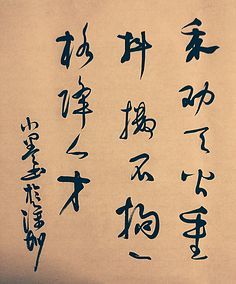 我劝天公重
抖擞不拘一
格降人才
小墨书於深圳